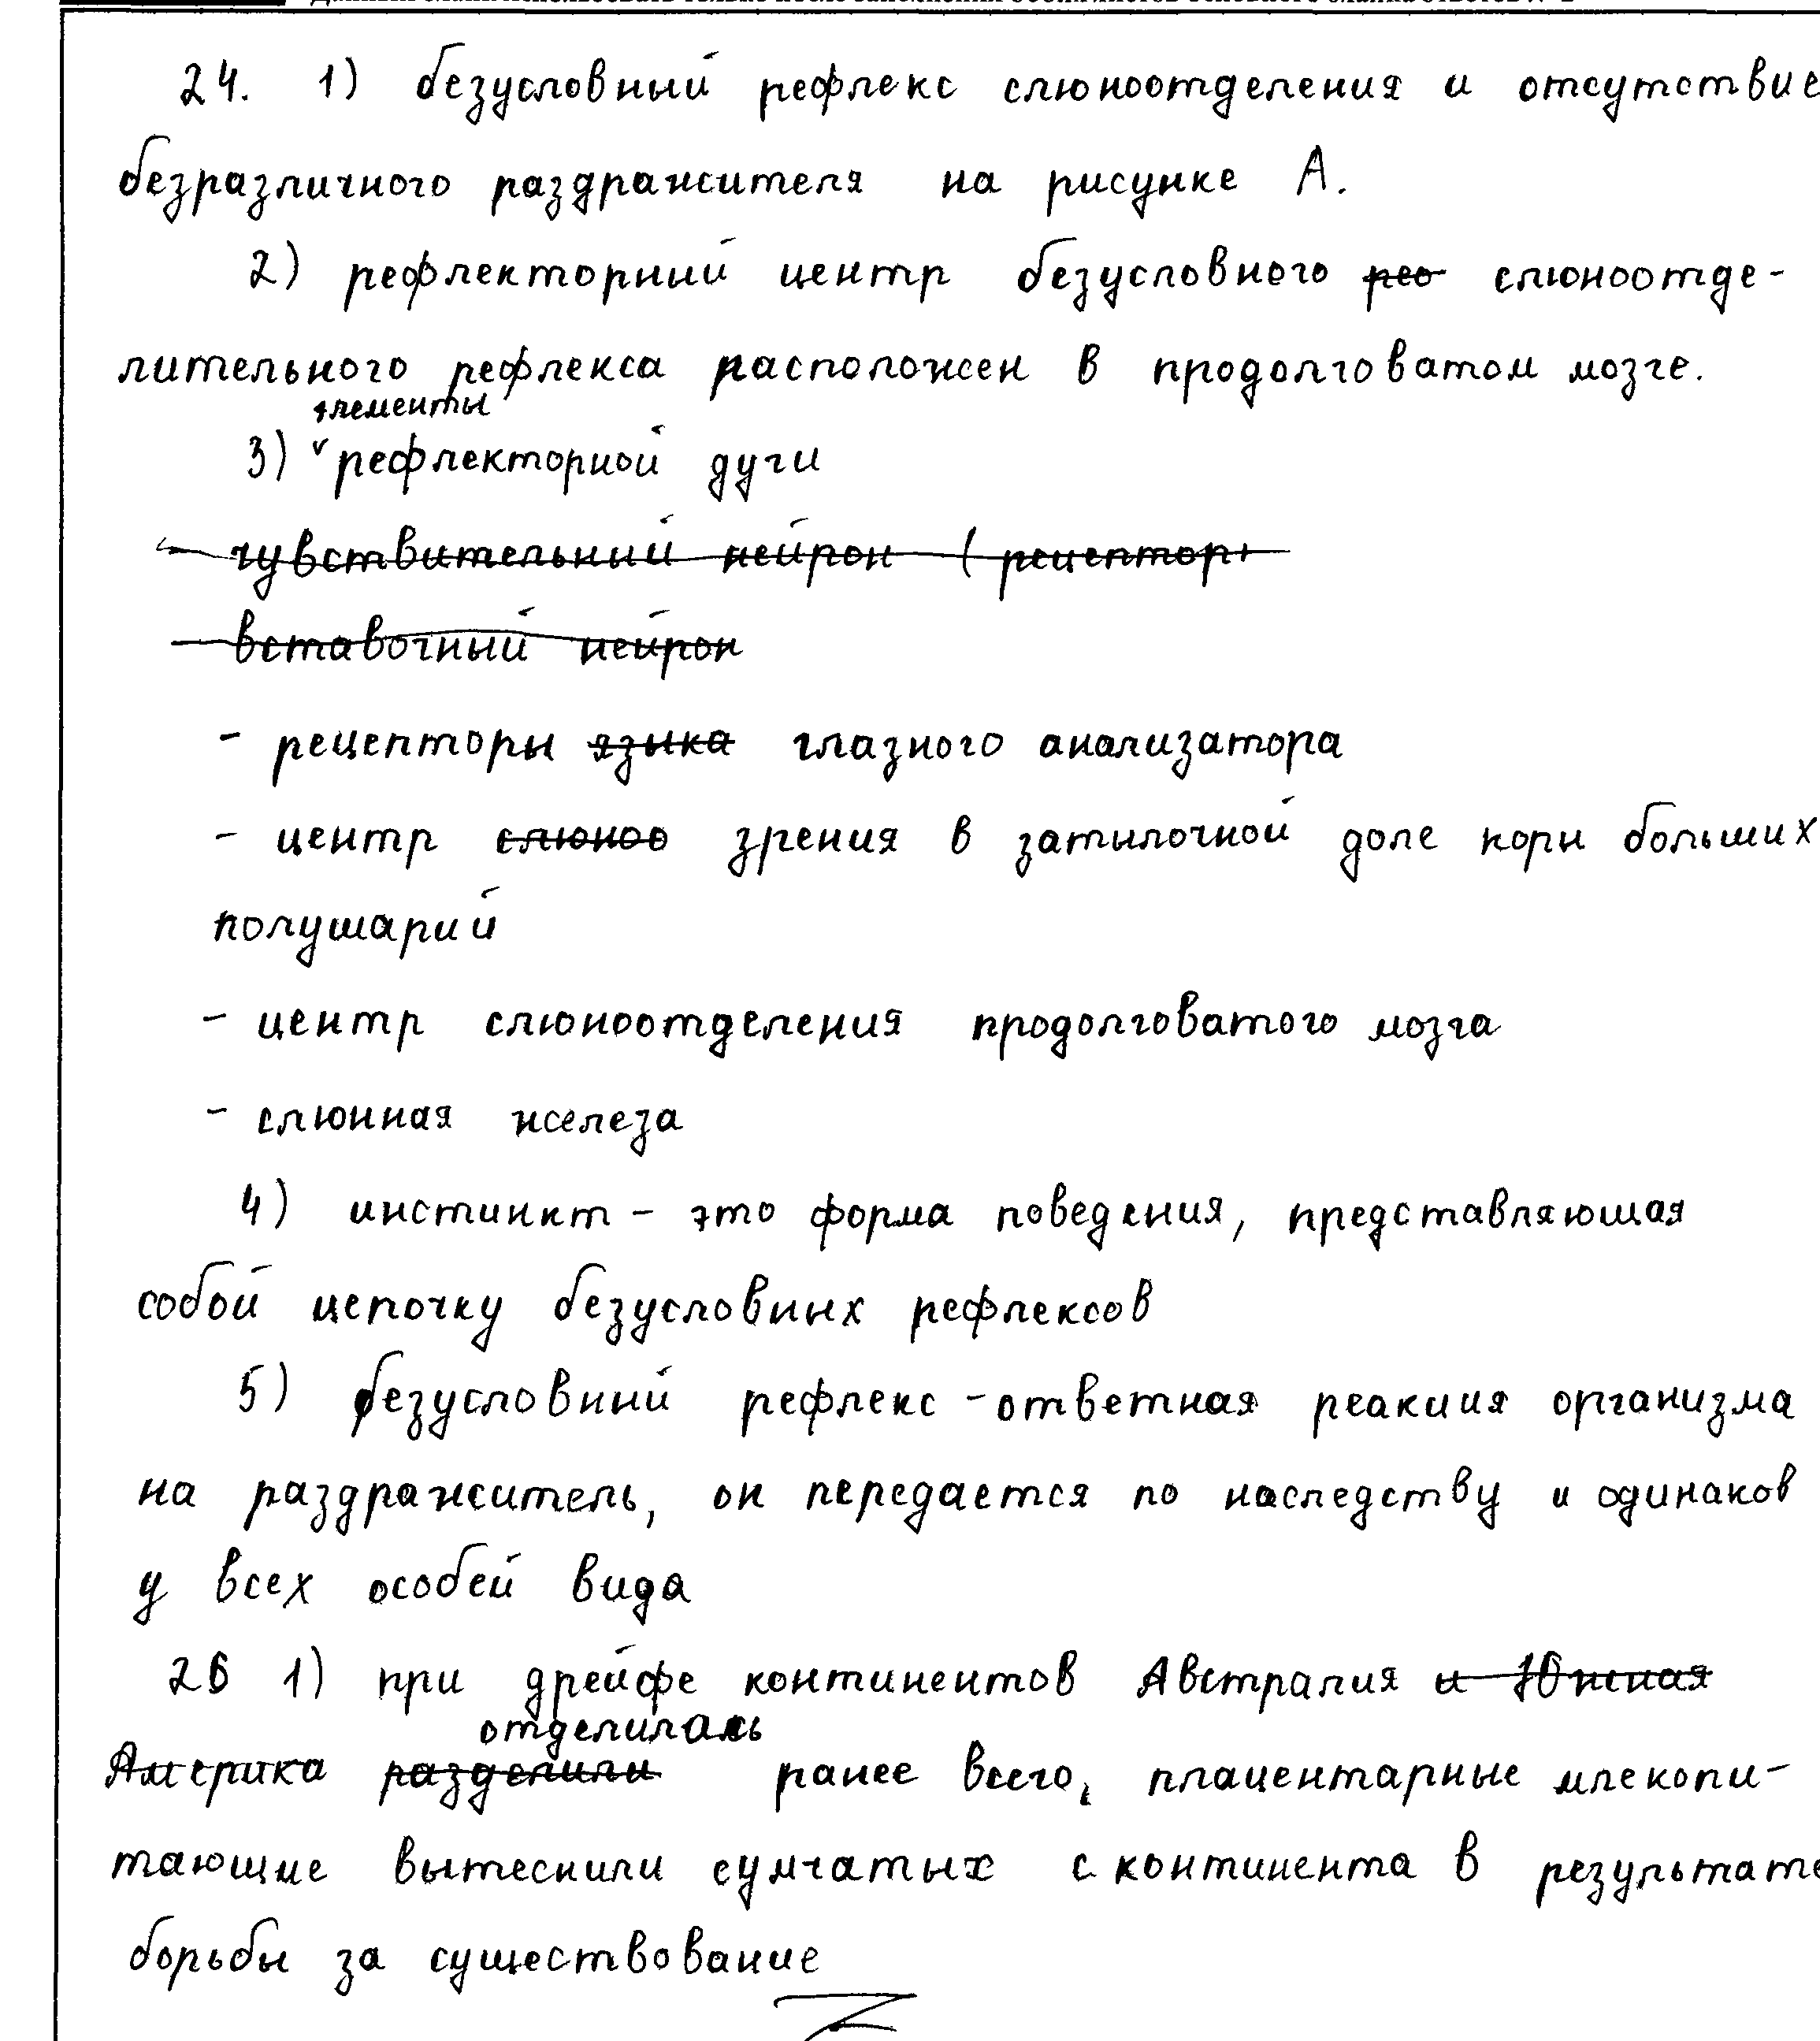 24. 1) безусловный рефлекс слюноотделения и отсутствие
безразличного раздражителя на рисунке А.
2) рефлекторный центр безусловного рео слюноотде-
лительного рефлекса расположен в продолговатом мозге.
элементы
3) рефлекторной дуги
- чувствительный нейрон (рецептор
- вставочный нейрон
- рецепторы языка глазного анализатора
- центр слюноо зрения в затылочной доле коры больших
полушарий
- центр слюноотделения продолговатого мозга
- слюнная железа
4) инстинкт - это форма поведения, представляющая
собой цепочку безусловных рефлексов
5) безусловный рефлекс - ответная реакция организма
на раздражитель, он передается по наследству и одинаков
у всех особей вида
26 1) при дрейфе континентов Австралия и Южная
отделилась
Америка разделили ранее всего, плацентарные млекопи-
тающие вытеснили сумчатых с континента в результате
борьбы за существование